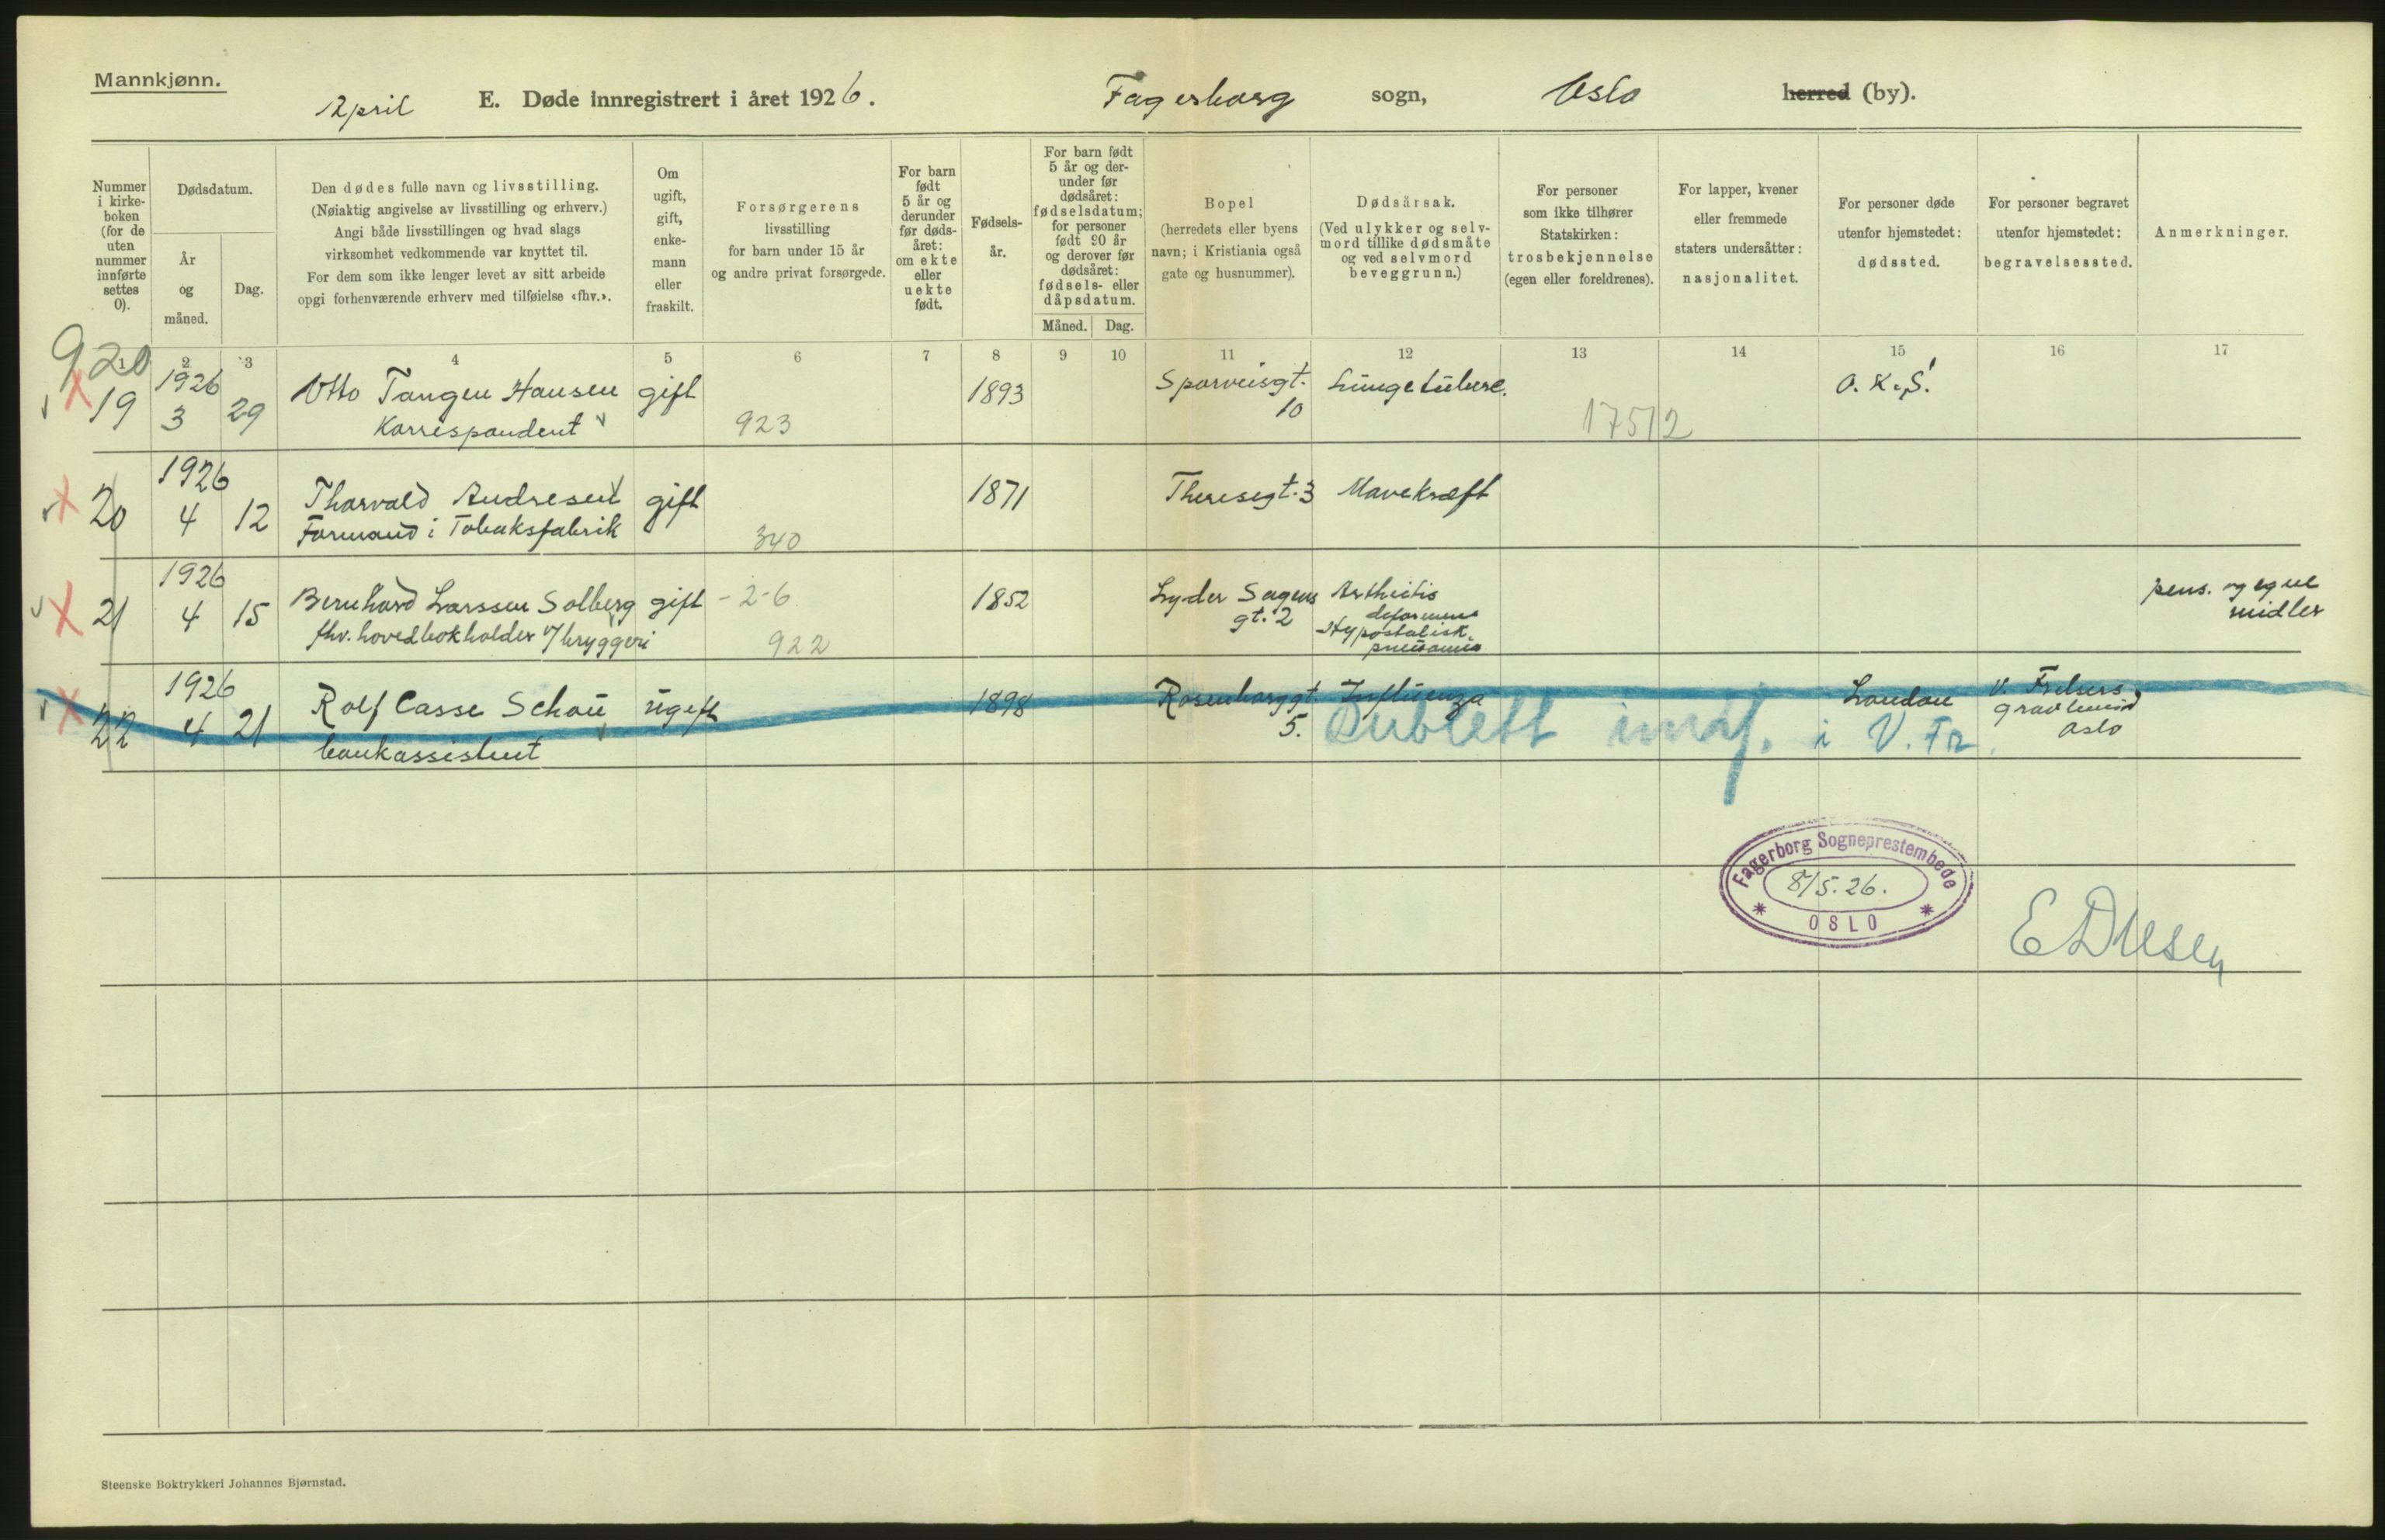 Mannkjønn.
April E. Døde innregistrert i året 1926. Fagerborg sogn, Oslo herred (by).
Nummer i kirke-boken (for de uten nummer innførte settes 0).
Dødsdatum.
År og måned.
Dag.
Den dødes fulle navn og livsstilling.
(Nøiaktig angivelse av livsstilling og erhverv.)
Angi både livsstillingen og hvad slags
virksomhet vedkommende var knyttet til.
For dem som ikke lenger levet av sitt arbeide
opgi forhenværende erhverv med tilføielse «fhv.».
Om ugift, gift, enke-mann eller fraskilt.
Forsørgerens
livsstilling
for barn under 15 år
og andre privat forsørgede.
For barn født 5 år og derunder før døds-året: om ekte eller uekte født.
Fødsels-år.
For barn født 5 år og der-under før dødsåret: fødselsdatum; for personer født 90 år og derover før dødsåret: fødsels- eller dåpsdatum.
Måned. Dag.
Bopel
(herredets eller byens
navn; i Kristiania også
gate og husnummer).
Dødsårsak.
(Ved ulykker og selv-
mord tillike dødsmåte
og ved selvmord
beveggrunn.)
For personer
som ikke tilhører
Statskirken:
trosbekjennelse
(egen eller foreldrenes).
For lapper, kvener
eller fremmede
staters undersåtter:
nasjonalitet.
For personer døde
utenfor hjemstedet:
dødssted.
For personer begravet
utenfor hjemstedet:
begravelsessted.
Anmerkninger.
920
1 2 3 4 5 6 7 8 9 10 11 12 13 14 15 16 17
19 1926 3 29 Otto Tangen Hansen gift 1893 Sporveisgt. Lungetuberc. O. K. S.
Korrespondent 923 10 17512
20 1926 4 12 Thorvald Andresen gift 1871 Theresegt. 3 Mavekræft
Formand i Tobaksfabrik 340
21 1926 4 15 Bernhard Larssen Solberg gift - 2-6 1852 Lyder Sagens Arthritis pens. og egne
gt. 2 deformans midler
fhv. hovedbokholder v/ bryggeri 922 Hypostatisk.
pneumoni
22 1926 4 21 Rolf Casse Schou ugift 1898 Rosenborggt Influenza London V. Frelsers
5. gravlund
bankassistent Oslo
Dublett innf. i V. Fr.
Fagerborg Sogneprestembede
8/5.26.
* OSLO *
Steenske Boktrykkeri Johannes Bjørnstad.